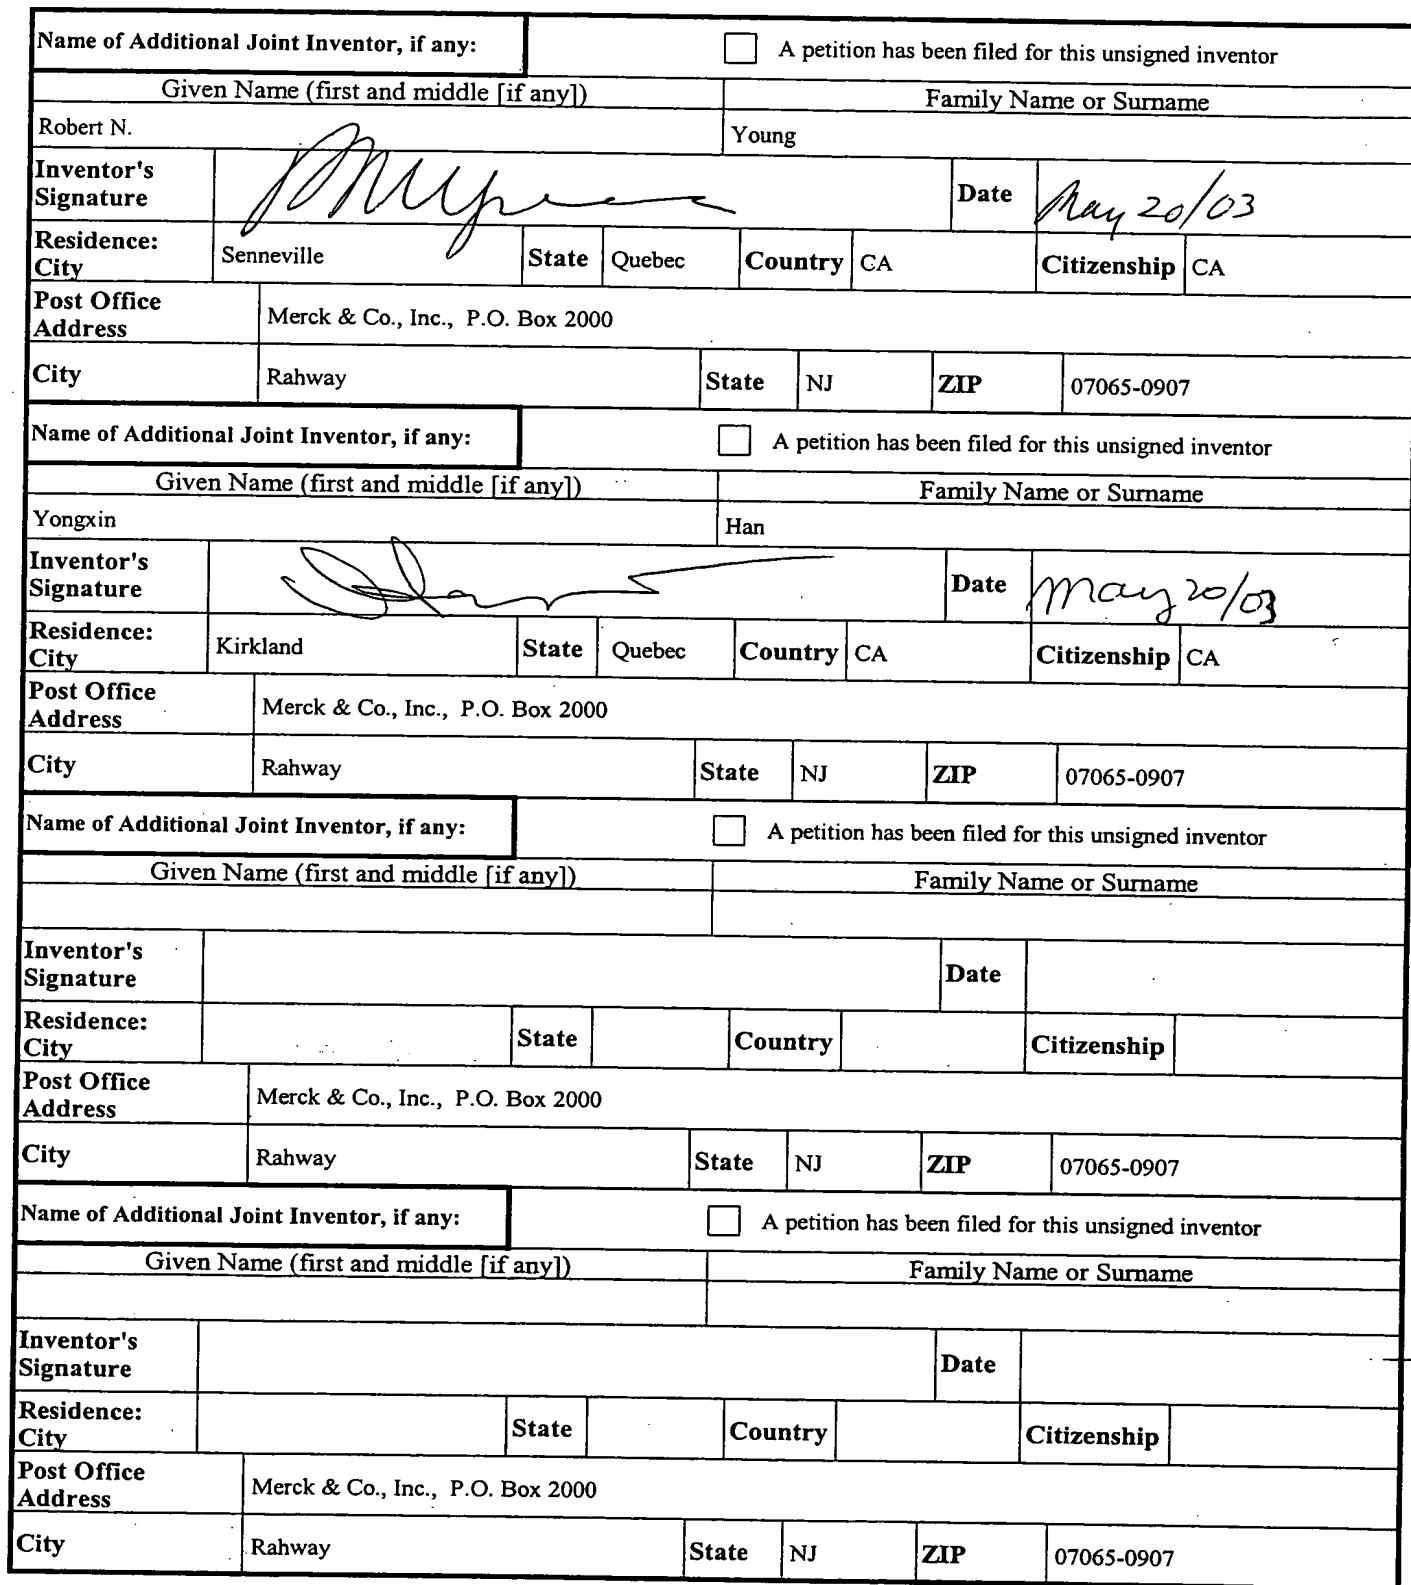 Name of Additional Joint Inventor, if any: A petition has been filed for this unsigned inventor
Given Name (first and middle [if any]) Family Name or Surname
Robert N. Young
Inventor's Signature Date May 20/03
Residence: City Senneville State Quebec Country CA Citizenship CA
Post Office Address Merck & Co., Inc., P.O. Box 2000
City Rahway State NJ ZIP 07065-0907
Name of Additional Joint Inventor, if any: A petition has been filed for this unsigned inventor
Given Name (first and middle [if any]) Family Name or Surname
Yongxin Han
Inventor's Signature Date May 20/03
Residence: City Kirkland State Quebec Country CA Citizenship CA
Post Office Address Merck & Co., Inc., P.O. Box 2000
City Rahway State NJ ZIP 07065-0907
Name of Additional Joint Inventor, if any: A petition has been filed for this unsigned inventor
Given Name (first and middle [if any]) Family Name or Surname
Inventor's Signature Date
Residence: City State Country Citizenship
Post Office Address Merck & Co., Inc., P.O. Box 2000
City Rahway State NJ ZIP 07065-0907
Name of Additional Joint Inventor, if any: A petition has been filed for this unsigned inventor
Given Name (first and middle [if any]) Family Name or Surname
Inventor's Signature Date
Residence: City State Country Citizenship
Post Office Address Merck & Co., Inc., P.O. Box 2000
City Rahway State NJ ZIP 07065-0907